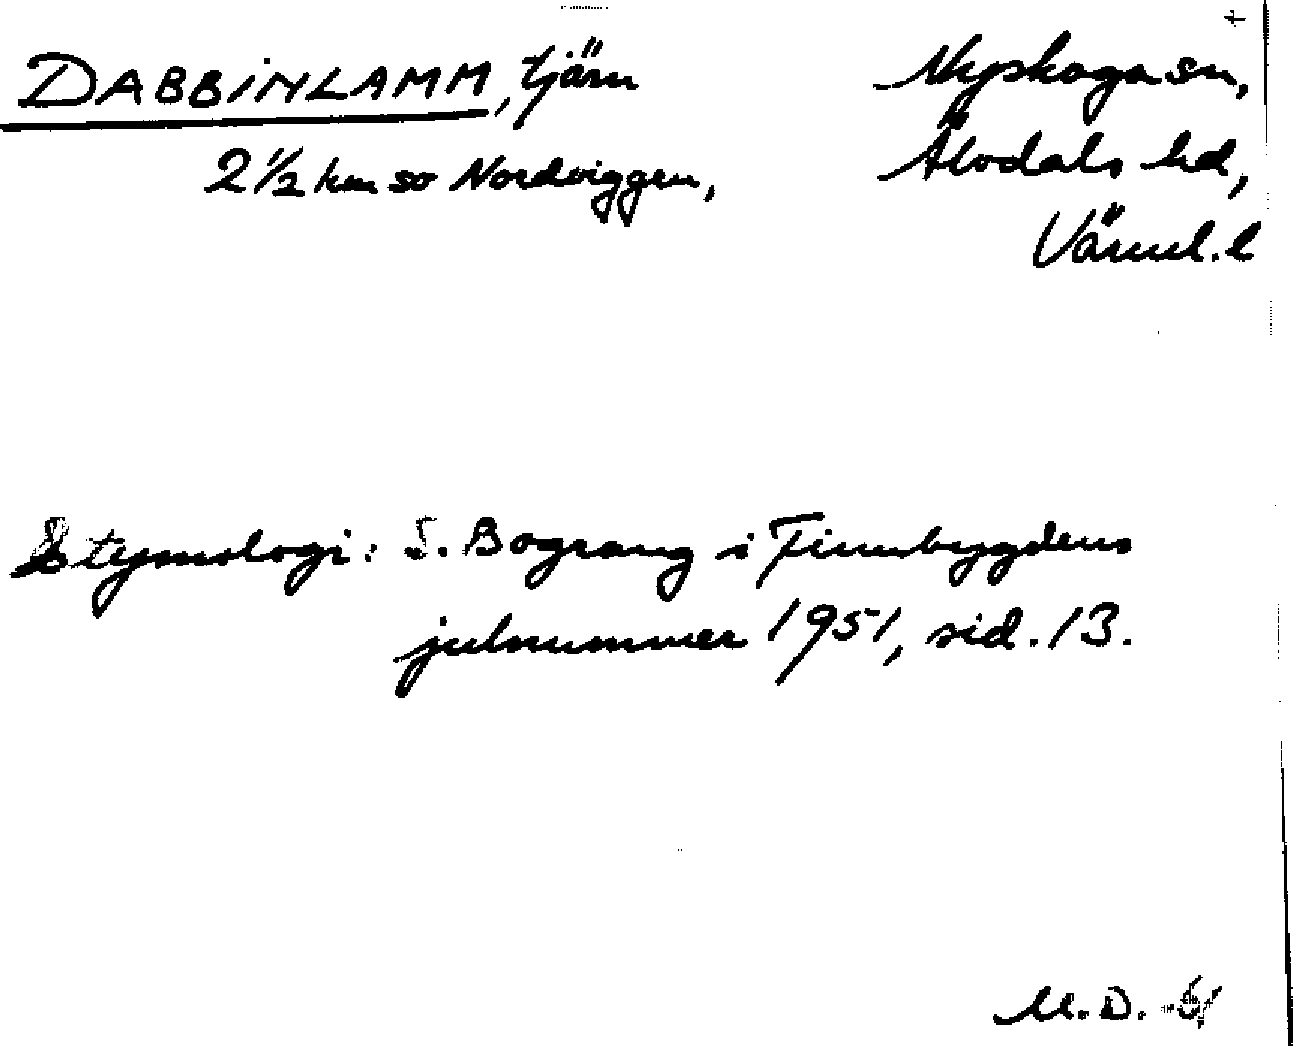 DABBINLAMM, tjärn
2 1/2 km so Nordviggen,
Nyskoga sn,
Älvdals hd,
Värml. l
Etymologi: S. Bograng i Finnbygdens
julnummer 1951, sid. 13.
M.D.